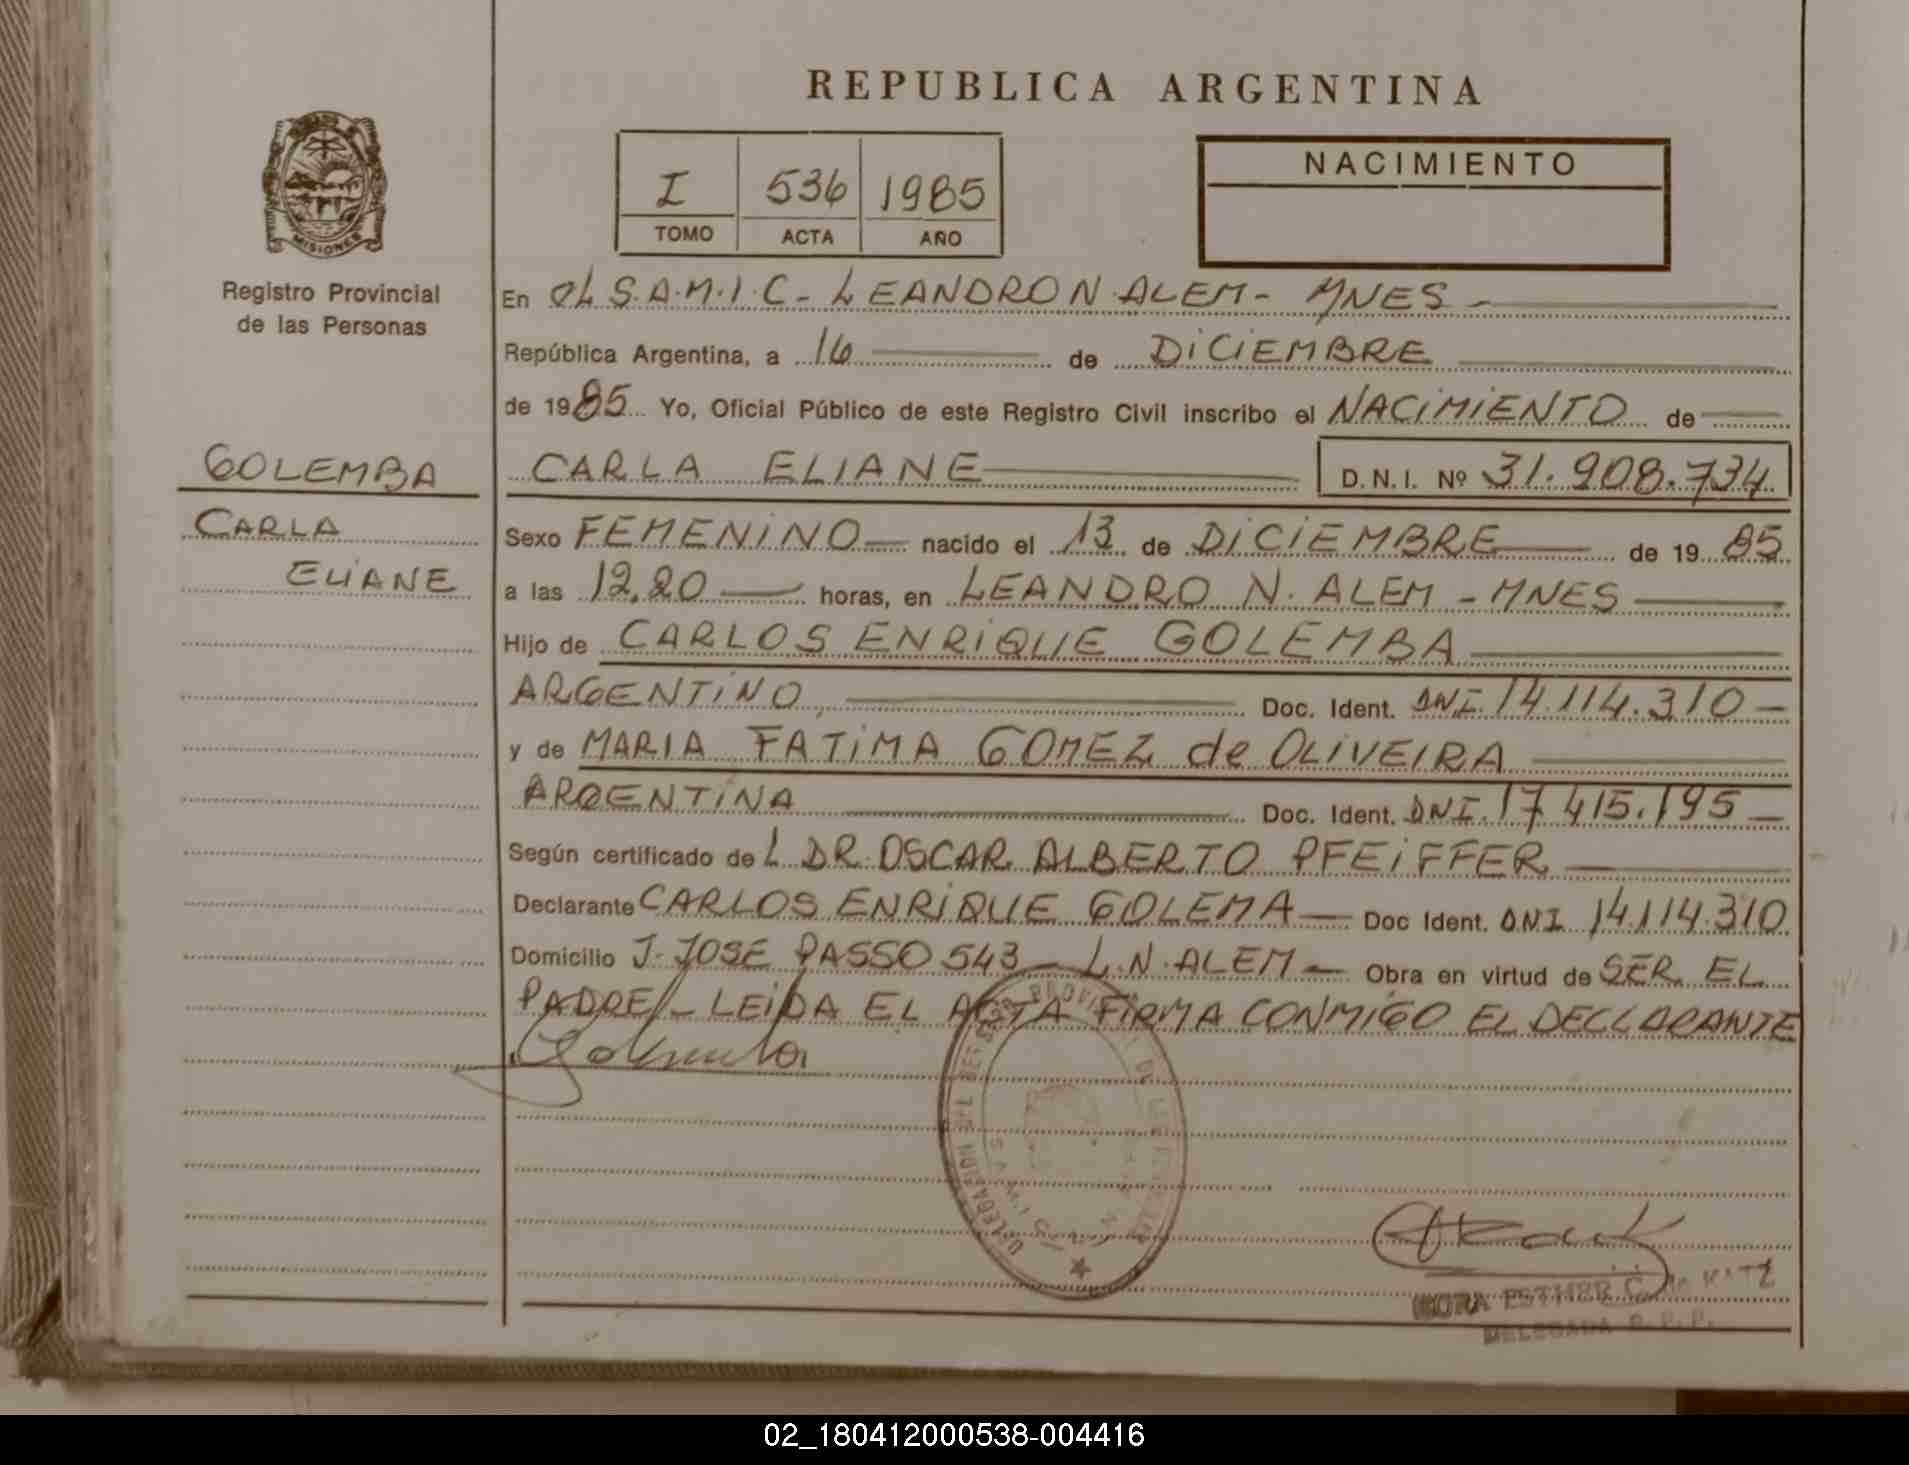 REPUBLICA ARGENTINA
MISIONES
Registro Provincial
de las Personas
I 536 1985
TOMO ACTA AÑO
NACIMIENTO
En el S.A.M.I.C - LEANDRO N. ALEM - MNES -
República Argentina, a 16 de DICIEMBRE
de 1985 Yo, Oficial Público de este Registro Civil inscribo el NACIMIENTO de
GOLEMBA
CARLA ELIANE
CARLA ELIANE D.N.I. Nº 31.908.734
Sexo FEMENINO nacido el 13 de DICIEMBRE de 1985
a las 12,20 horas, en LEANDRO N. ALEM - MNES
Hijo de CARLOS ENRIQUE GOLEMBA
ARGENTINO, Doc. Ident. DNI. 14.114.310 -
y de MARIA FATIMA GOMEZ de OLIVEIRA
ARGENTINA Doc. Ident. DNI. 17 415.195 -
Según certificado de L DR. OSCAR ALBERTO PFEIFFER
Declarante CARLOS ENRIQUE GOLEMA - Doc Ident. DNI 14.114.310
Domicilio J. JOSE PASSO 543 - L.N. ALEM - Obra en virtud de SER EL
PADRE - LEIDA EL ACTA FIRMA CONMIGO EL DECLARANTE
Golemba
ESTHER C. de KATZ
DELEGADA R.P.P.
02_180412000538-004416